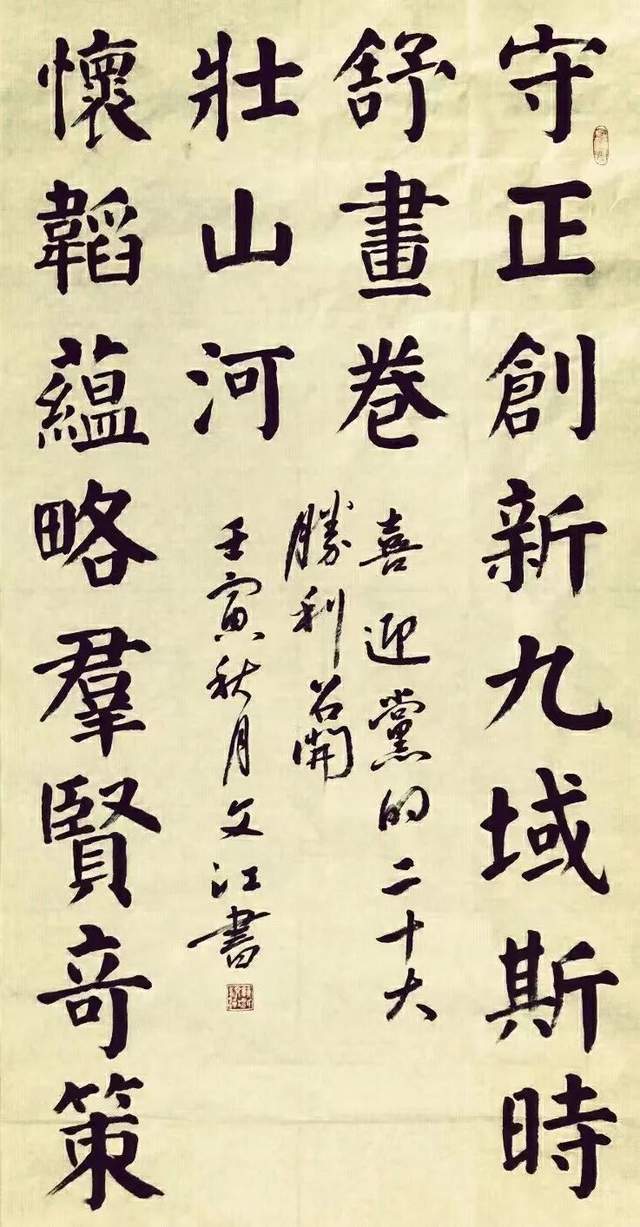 守正創新九域斯時
舒畫卷
懷韜蘊略羣賢奇策
壯山河
喜迎黨的二十大
勝利召開
壬寅秋月文江書